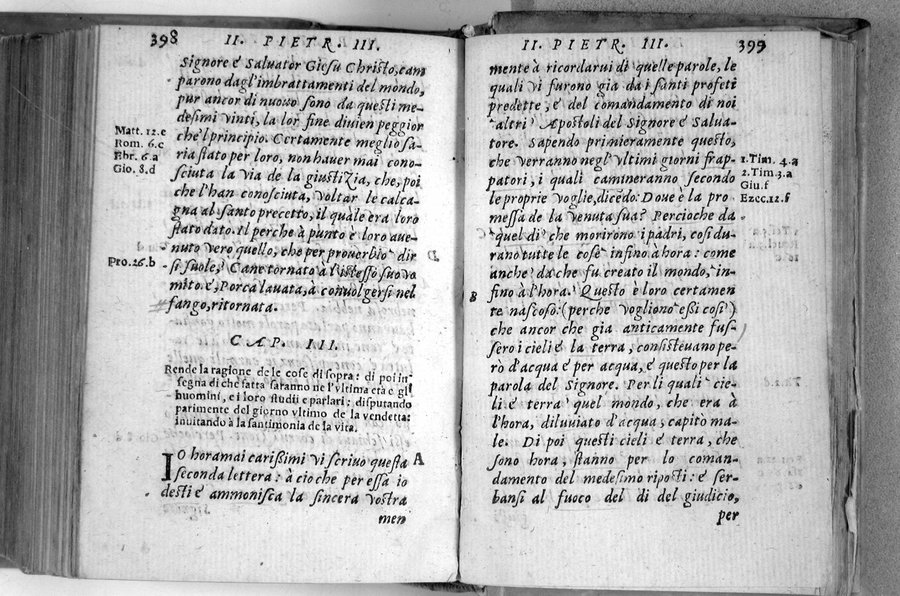 398
II. PIETR. III.
Signore e Saluator Giesu Christo, cam
parono dagl'imbrattamenti del mondo,
pur ancor di nuouo sono da questi me-
desimi vinti, la lor fine diuien peggior
che'l principio. Certamente meglio sa-
ria stato per loro, non hauer mai cono-
sciuta la via de la giustiZia, che, poi
che l'han conosciuta, voltar le calca-
gna al santo precetto, il quàle era loro
stato dato. Il perche à punto è loro aue-
nuto vero quello, che per prouerbio dir
si suole, Cane tornato à l'istesso suo vo
mito. e, Porca lauata, à conuolgersi nel
fango, ritornata.
Matt. 12.e
Rom. 6.c
Ebr. 6.a
Gio. 8.d
Pro. 26.b
CAP. III.
Rende la ragione de le cose di sopra: di poi in
segna di che fatta saranno ne l'vltima età e gl
huomini, e i loro studii e parlari: disputando
parimente del giorno vltimo de la vendetta:
inuitando à la santimonia de la vita.
IO horamai carissimi vi scriuo questa
seconda lettera: à cio che per essa io
desti e ammonisca la sincera vostra
men
A
II. PIETR. III.
399
mente à ricordarui di quelle parole, le
quali vi furono gia da i santi profeti
predette, e del comandamento di noi
altri Apostoli del Signore e Salua-
tore. Sapendo primieramente questo,
che verranno negl'vltimi giorni frap-
patori, i quali camineranno secondo
le proprie voglie, dicēdo: Doue è la pro
messa de la venuta sua? Percioche da
quel di che morirono i padri, cosi du-
rano tutte le cose infino à hora: come
anche da che fu creato il mondo, in-
fino à l'hora. Questo è loro certamen
te nascoso: (perche vogliono essi cosi)
che ancor che gia anticamente fus-
sero i cieli e la terra, consisteuano pe-
rò d'acqua e per acqua, e questo per la
parola del Signore. Per li quali cie-
li e terra quel mondo, che era à
l'hora, diluuiato d'acqua, capitò ma-
le. Di poi questi cieli e terra, che
sono hora, stanno per lo coman-
damento del medesimo riposti: e ser-
bansi al fuoco del di del giudicio,
per
B
1. Tim. 4.a
2. Tim 3.a
Giu. f
Ezec. 12.f